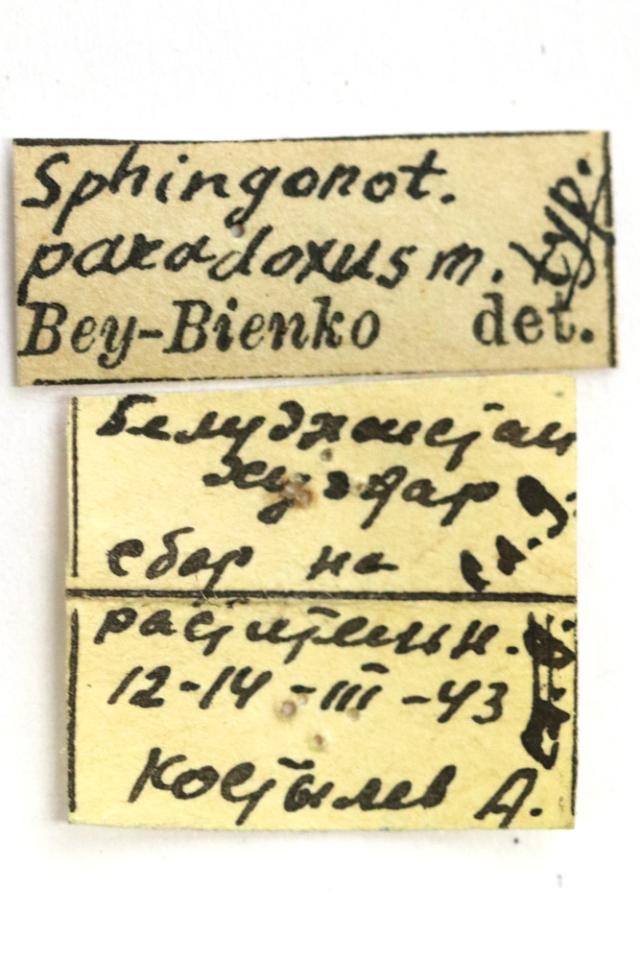 Sphingonot.
paradoxus m. typ.
Bey-Bienko det.
Белуджистан
Хуздар
сбор на
растительн.
12-14-III-43
Костылев А.